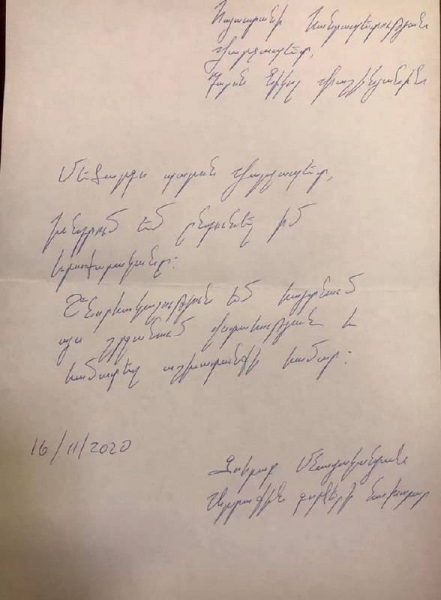 Հայաստանի Հանրապետության
վարչապետ,
պարոն Նիկոլ Փաշինյանին
Մեծարգո պարոն վարչապետ,
խնդրում եմ ընդունել իմ
հրաժարականը։
Շնորհակալություն եմ հայտնում
այս շրջանում վստահության և
համատեղ աշխատանքի համար։
16/11/2020
Զոհրաբ Մնացականյան
Արտաքին գործերի նախարար